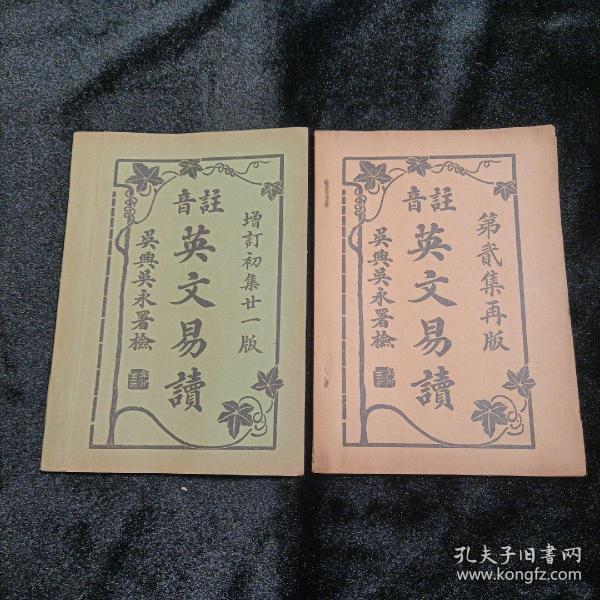 增訂初集廿一版
註音
英文易讀
吳興吳永署檢
第貳集再版
註音
英文易讀
吳興吳永署檢
孔夫子旧书网
www.kongfz.com